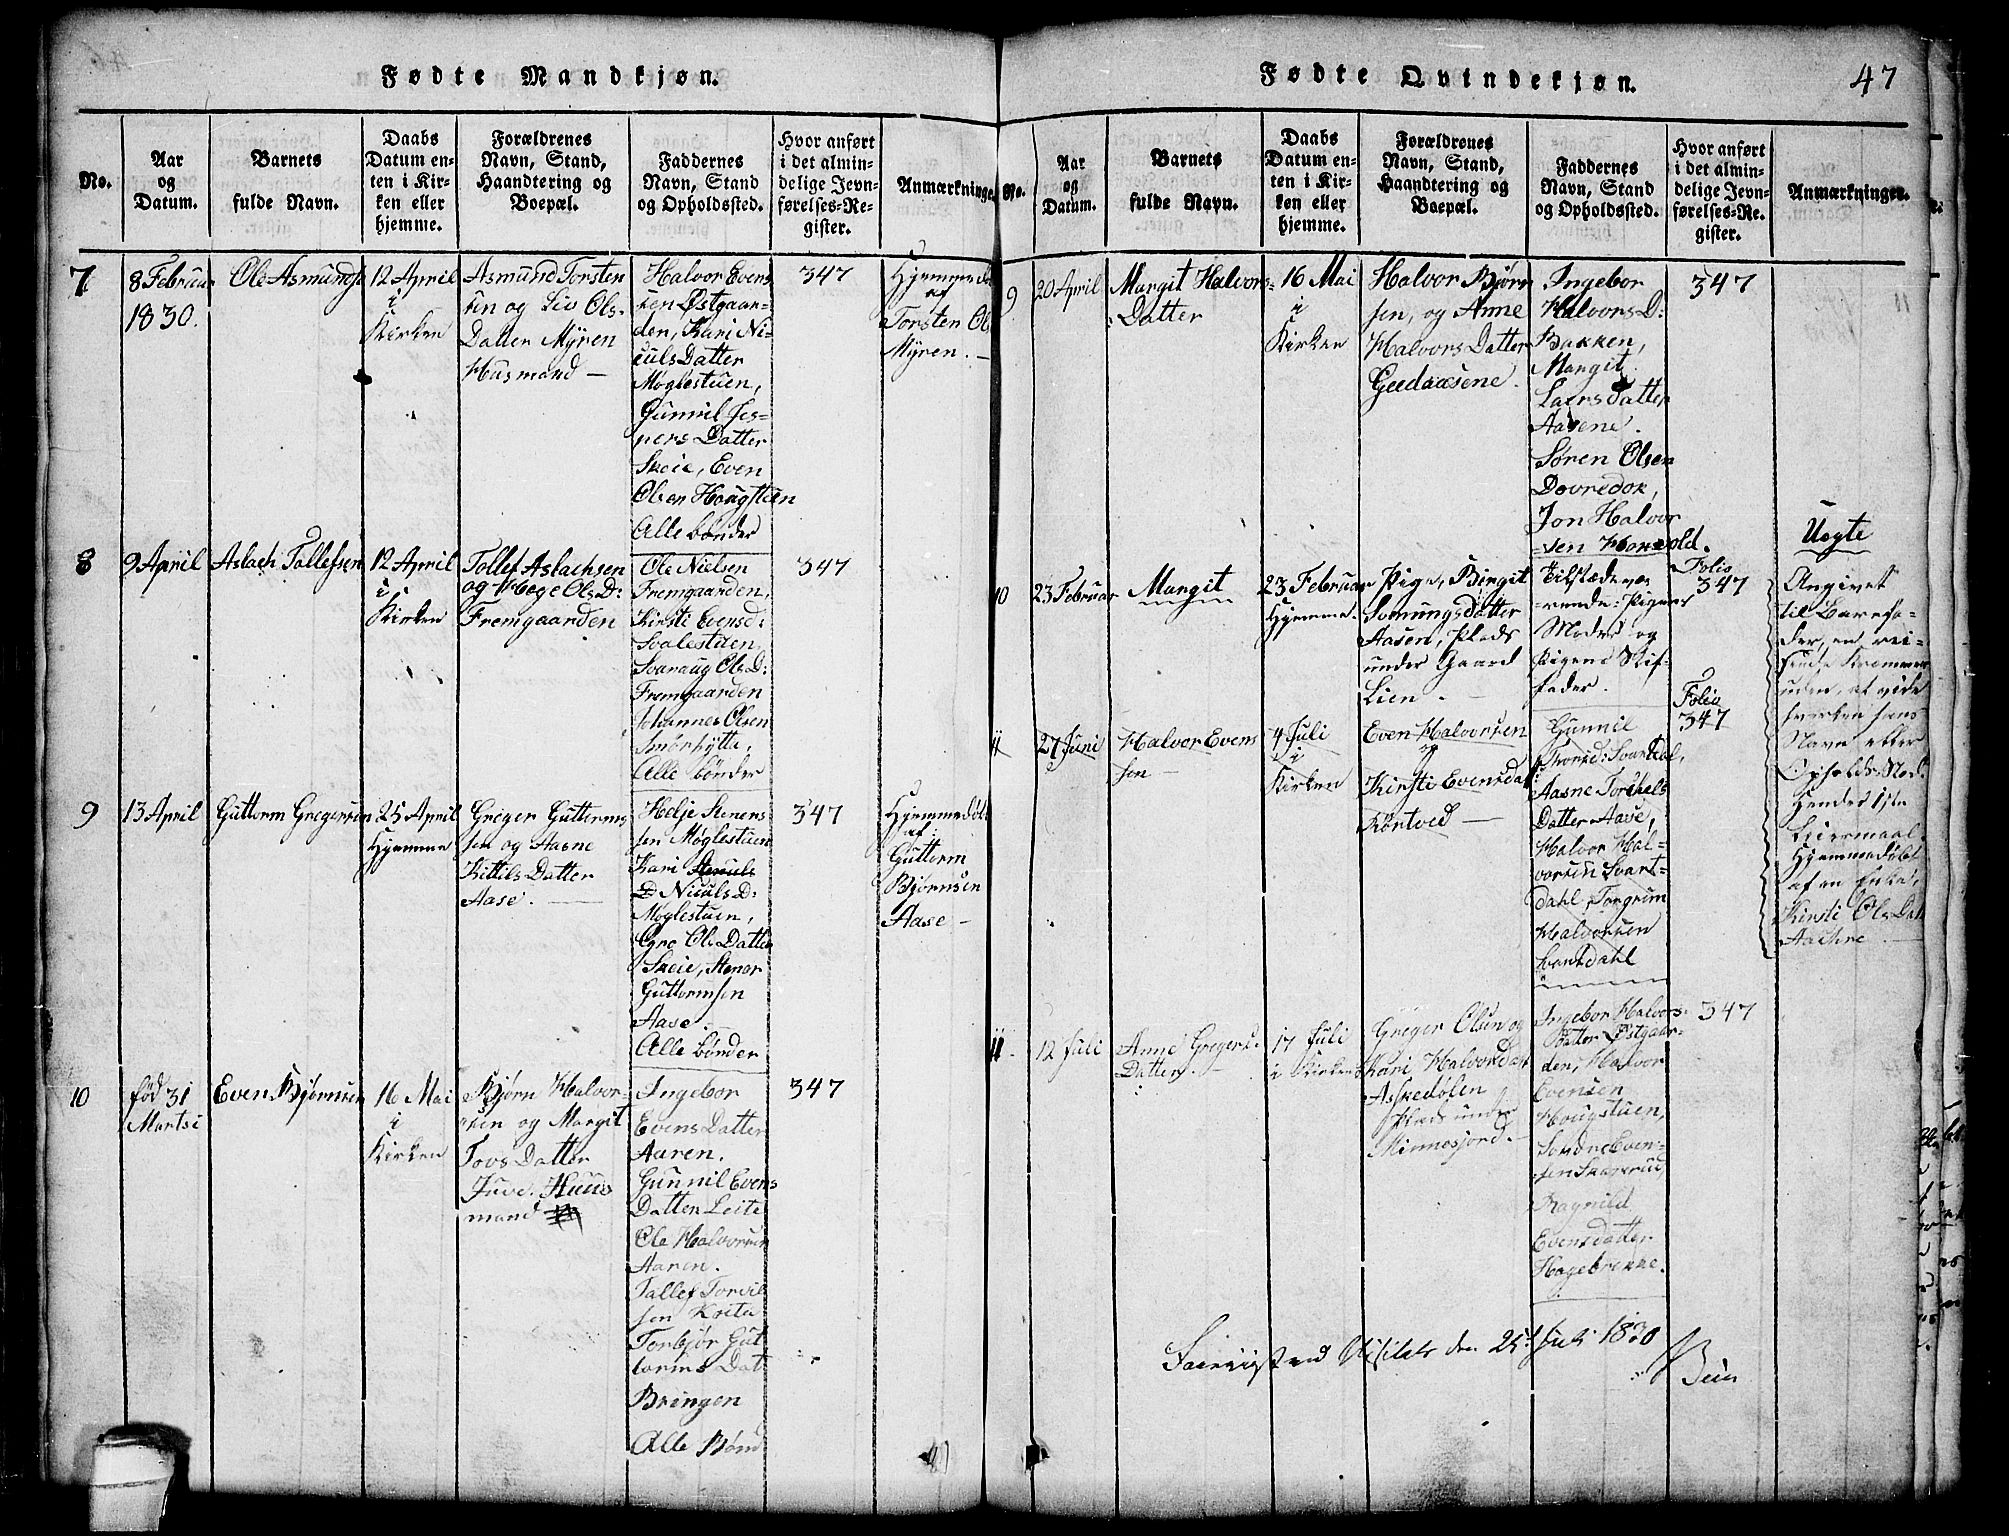 Fødte Mandkjøn.
No.
Aar
og
Datum.
Barnets
fulde Navn.
Daabs
Datum en-
ten i Kir-
ken eller
hjemme.
Forældrenes
Navn, Stand,
Haandtering og
Boepæl.
Faddernes
Navn, Stand
og Opholdssted.
Hvor anført
i det almin-
delige Jevn-
førelses-Re-
gister.
Anmærkninger
7
8 Februar
1830.
Ole Asmunds
12 April
i
Kirken
Asmund Torsten
sen og Liv Ols-
Datter Myren
Husmand —
Halvor Evens
sen Østgaar-
den, Kari Ni-
culs Datter
Møglestuen,
Gunvil Jes-
pers Datter
Skeie, Even
Olsen Hougstuen
Alle bønder
347
Hjemmedøb
af
Torsten Ol
Myren. —
8
9 April
Aslach Tollefsen
12 April
i
Kirken
Tollef Aslachsen
og Hæge Ols D:
Fremgaarden
Ole Nielsen
Fremgaarden,
Kirsti Evensd:
Svalestuen,
Svanaug Ols D:
Fremgaarden
Johannes Olsen
Smørhytta,
Alle bønder
347
9
13 April
Guttorm Gregersen
25 April
Hjemme
Greger Guttorms
sen og Aasne
Kittils Datter
Aase. —
Helje Steners
sen Møglestuen
Kari
D Niculs D:
Møglestuen,
Gro Ols Datter
Skeie, Stener
Guttormsen
Aase.
Alle bønder
347
Hjemmedøbt
af
Guttorm
Bjørnsen
Aase —
10
fød 31
Martsi
Even Bjørnsen
16 Mai
i
Kirken
Bjørn Halvor-
sen og Margit
Tovs Datter
Juve. Huus
mand
Ingebor
Evens Datter
Aaren.
Gunnil Evens
Datter Leite
Ole Halvorsen
Aaren.
Tallef Torvil
sen Krita
Torbjør Gut
torms Dat
Bringen
Alle Bønd
347
Fødte Qvindekjøn.
47
No.
Aar
og
Datum.
Barnets
fulde Navn.
Daabs
Datum en-
ten i Kir-
ken eller
hjemme.
Forældrenes
Navn, Stand,
Haandtering og
Boepæl.
Faddernes
Navn, Stand
og Opholdssted.
Hvor anført
i det almin-
delige Jevn-
førelses-Re-
gister.
Anmærkninger.
9
20 April
Margit Halvors-
Datter
16 Mai
i
Kirken
Halvor Bjørn
sen, og Anne
Halvors Datter
Gudaasene.
Ingebor
Halvors D:
Bakken,
Margit
Laers datter
Aasene.
Søren Olsen
Dovredok,
Jon Halvor
-sen Honvold.
347
10
23 Februar
Margit
23 Februar
Hjemme.
Pige, Birgit
Sømungsdatter
Aasen, Plads
under Gaard
Lien. —
Tilstædevæ-
-rende: Pigens
Moder og
Pigens Stif-
fader.
Folio
347
Uegte
Angivet
til Barnefa-
der, en rei-
sende Kræmmer
uden, at vide
hverken hans
Navn eller
Opholds-Sted.
Hendes 1ste
Leiermaal.
Hjemmedøbt
af en Enke,
Kirsti Ols Dat
Aasene —
11
27 Juni
Halvor Evens
sen —
4 Juli
i
Kirken
Even Halvorsen
og
Kirsti Evensdat:
Røntved —
Gunnil
Thorsd: Svartdal,
Aasne Torkels
Datter Aase,
Halvor Hal-
vorsen Svart-
dahl, Torgrim
Halvorsen
Svartdahl
Folio
347
11
12 Juli
Anne Gregers-
Datter. —
17 Juli
i Kirken
Greger Olsen og
Kari Halvorsdat
Askedølen
Plads under
Minnesjord. —
Ingebor Halvors-
Datter Østgaar-
den, Halvor
Evensen
Hougstuen,
Sondre Even-
sen Skaverud,
Ragnild
Evensdatter
Hagebrekke.
347
Foreviist ved Visitats den 25d Juli 1830